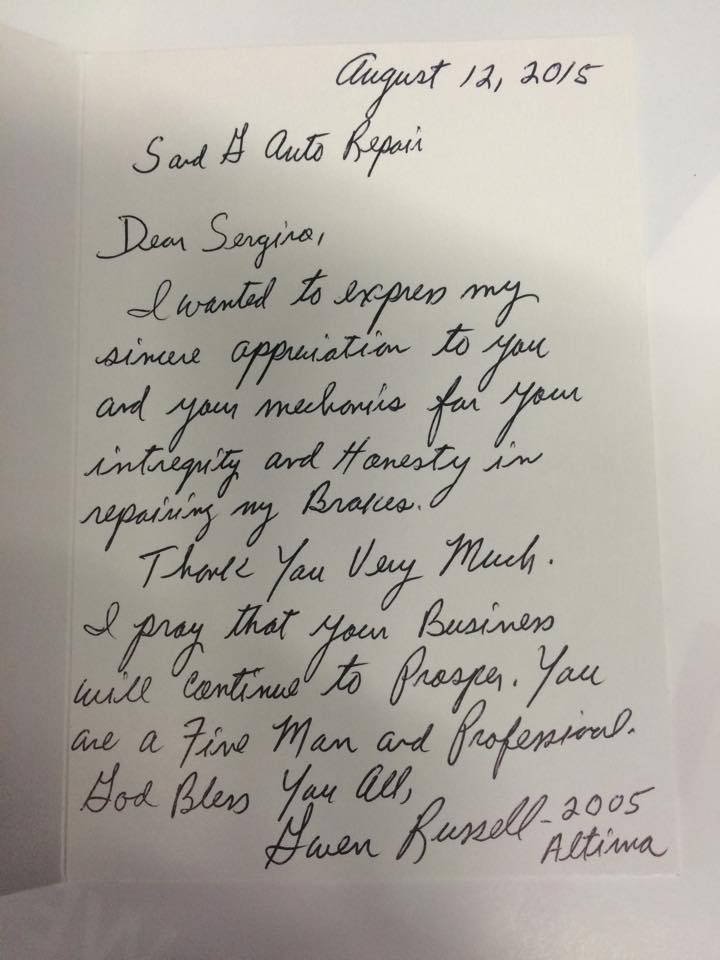 August 12, 2015
S and G Auto Repair
Dear Sergiro,
I wanted to express my
sincere appreciation to you
and your mechanics for your
intregrity and Honesty in
repairing my Brakes.
Thank You Very Much.
I pray that your Business
will continue to Prosper. You
are a Fine Man and Professional.
God Bless You All,
Gwen Russell - 2005
Altima